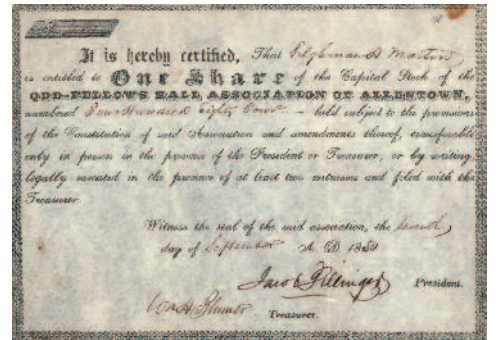 It is hereby certified, That Tilghman H Martin
is entitled to One Share of the Capital Stock of the
ODD-FELLOWS HALL ASSOCIATION OF ALLENTOWN,
numbered Four Hundred Eighty Four — held subject to the provisions
of the Constitution of said Association and amendments thereof, transferable
only in person in the presence of the President or Treasurer, or by writing,
legally executed in the presence of at least two witnesses and filed with the
Treasurer.
Witness the seal of the said association, the
day of September A. D. 18
Jacob Dillinger President.
Treasurer.